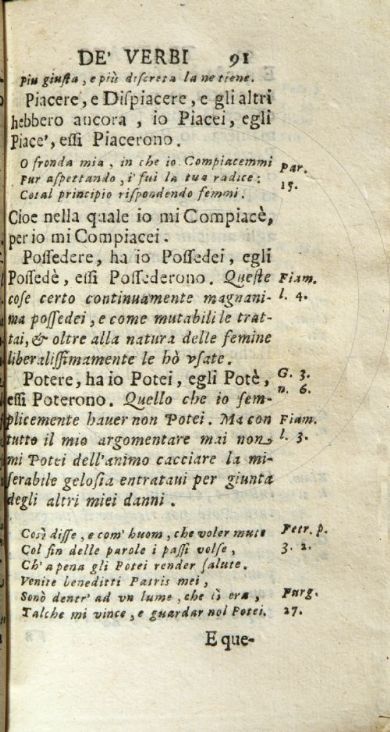 DE' VERBI 91
più giusta, e più discreta la ne tiene.
Piacere, e Dispiacere, e gli altri
hebbero ancora, io Piacei, egli
Piace', essi Piacerono.
O fronda mia, in che io Compiacemmi
Pur aspettando, i' fui la tua radice: Par.
Cotal principio rispondendo femmi. 15.
Cioe nella quale io mi Compiacè,
per io mi Compiacei.
Possedere, ha io Possedei, egli
Possedè, essi Possederono. Queste Fiam.
cose certo continuamente magnani- l. 4.
ma possedei, e come mutabili le trat-
tai, & oltre alla natura delle femine
liberalissimamente le hò vsate.
Potere, ha io Potei, egli Potè, G. 3.
essi Poterono. Quello che io sem- n. 6.
plicemente hauer non Potei. Ma con Fiam.
tutto il mio argomentare mai non l. 3.
mi Potei dell'animo cacciare la mi-
serabile gelosia entrataui per giunta
degli altri miei danni.
Così disse, e com' huom, che voler mute Petr. p.
Col fin delle parole i passi volse, 3. 2.
Ch' a pena gli Potei render salute.
Venite beneditti Patris mei,
Sonò dentr' ad vn lume, che lì era, Purg.
Talche mi vince, e guardar nol Potei. 27.
E que-